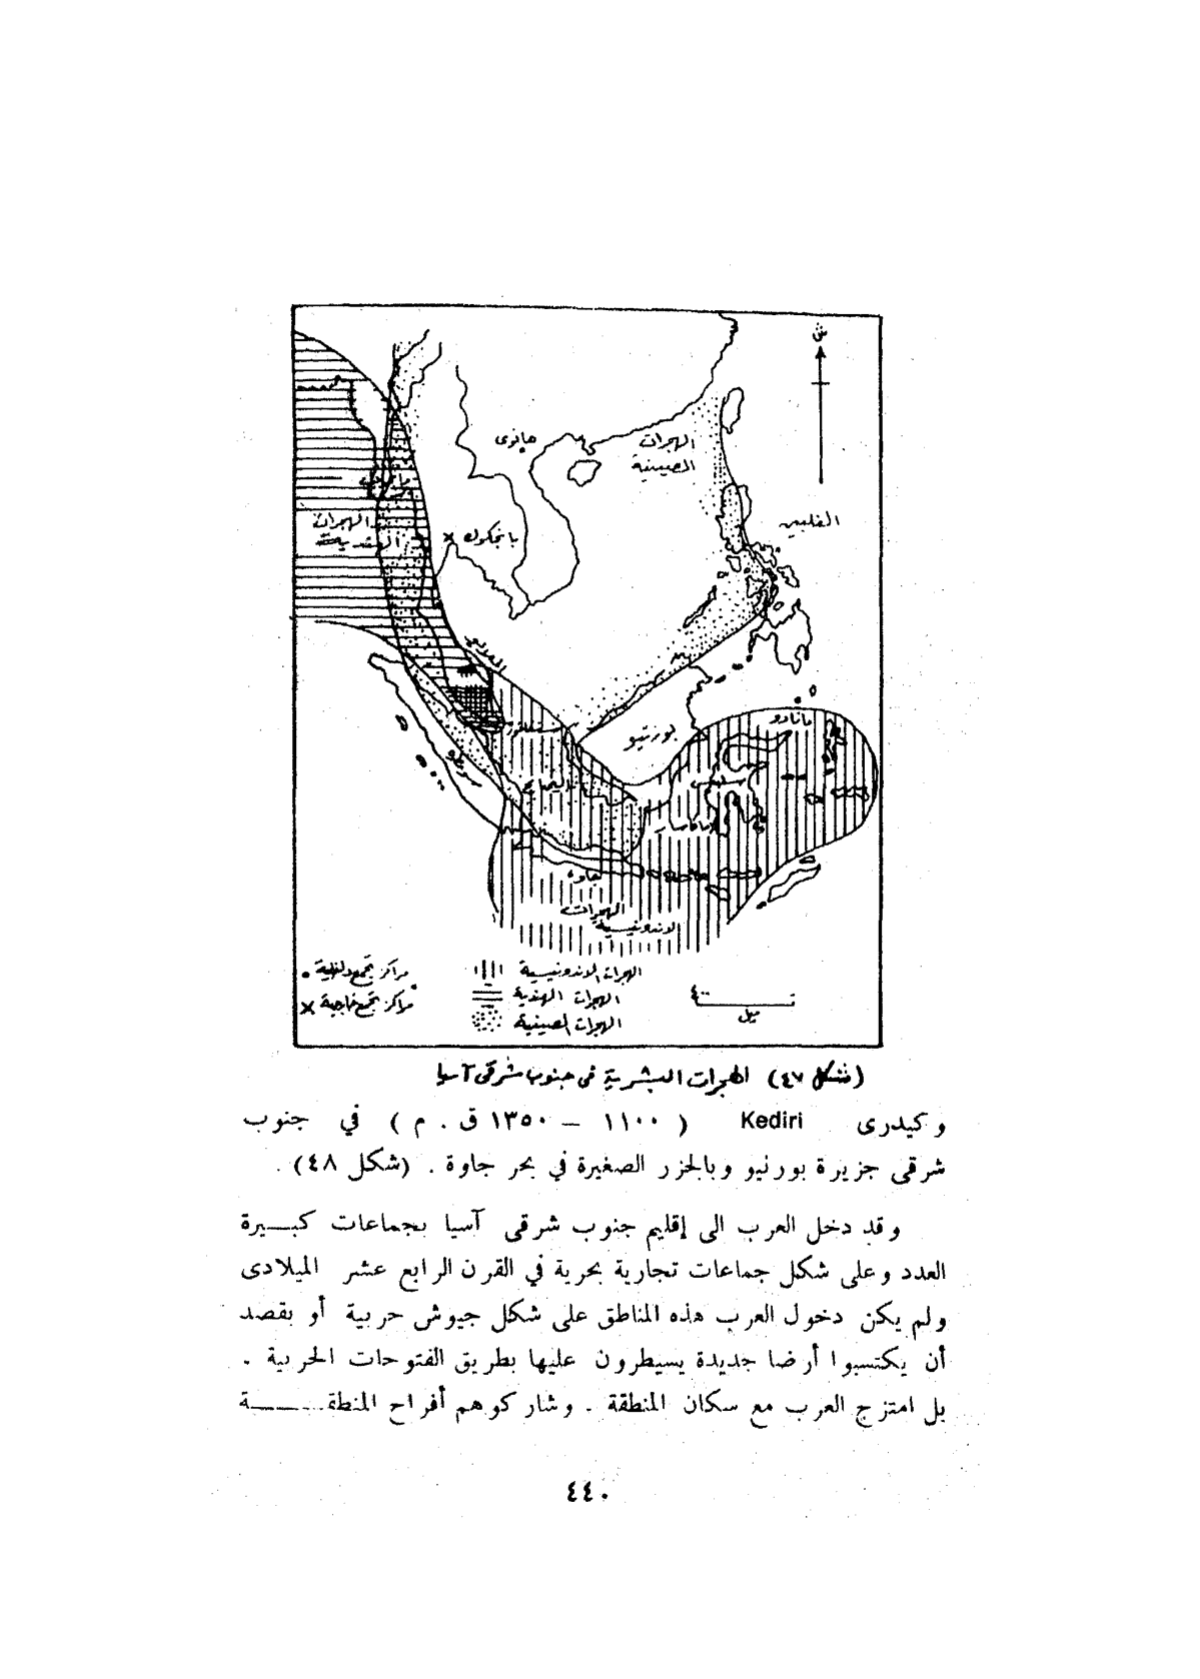 ش
هانوى
الهجرات
الصينية
الفلبين
الهجرات
بانجكوك
مانادو
بورنيو
جاوة
الهجرات
الاندونيسية
الهجرات الاندونيسية
مراكز تجمع داخلية
الهجرات الهندية
مراكز تجمع خارجية
الهجرات الصينية
٤٠٠
ميل
(شكل ٤٧) الهجرات البشرية فى جنوب شرقى آسيا
وكيدرى Kediri ( ١١٠٠ – ١٣٥٠ ق . م ) في جنوب
شرقى جزيرة بورنيو وبالجزر الصغيرة في بحر جاوة . (شكل ٤٨) .
وقد دخل العرب الى إقليم جنوب شرقى آسيا بجماعات كبـــيرة
العدد وعلى شكل جماعات تجارية بحرية في القرن الرابع عشر الميلادى
ولم يكن دخول العرب هذه المناطق على شكل جيوش حربية أو بقصد
أن يكتسبوا أرضا جديدة يسيطرون عليها بطريق الفتوحات الحربية .
بل امتزج العرب مع سكان المنطقة . وشاركوهم أفراح المنطقـــــــة
٤٤٠